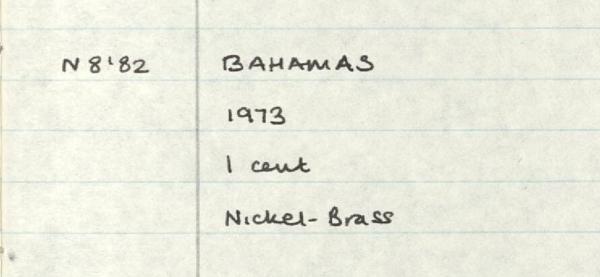 N 8'82 BAHAMAS
1973
1 cent
Nickel-Brass